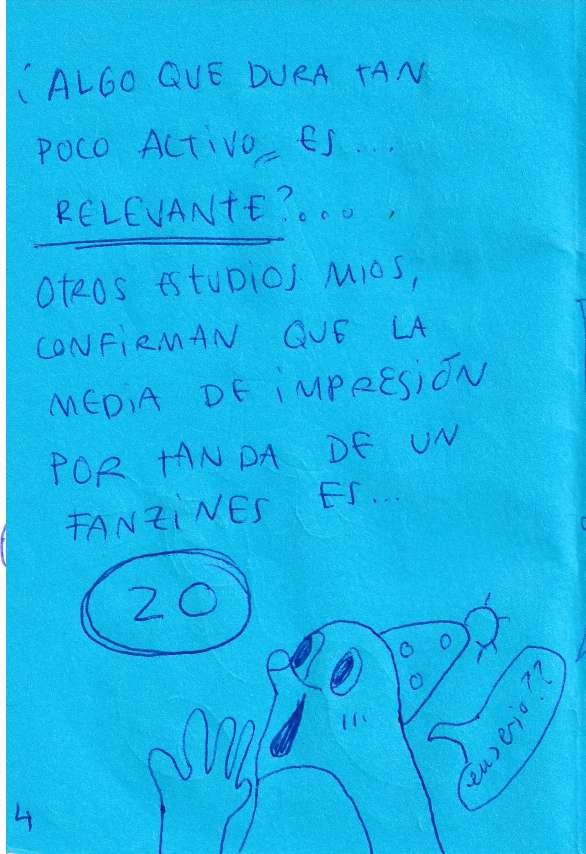 ¿ALGO QUE DURA TAN
POCO ACTIVO ES...
RELEVANTE?....
OTROS ESTUDIOS MIOS,
CONFIRMAN QUE LA
MEDIA DE IMPRESIÓN
POR TANDA DE UN
FANZINES ES...
20
enserio??
4